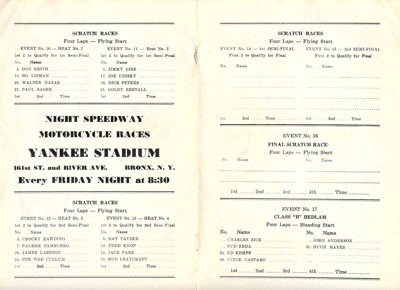 SCRATCH RACES
Four Laps — Flying Start
EVENT No. 10 — HEAT No. 1
1st 2 to Qualify for 1st Semi-Final
No. Name
4 DON SMITH
13 BO LISMAN
22 WALTER NAZAR
23 PAUL SAGER
1st 2nd Time
EVENT No. 11 — Heat No. 2
1st 2 to Qualify for 2nd Semi-Final
No. Name
1 JIMMY GIBB
17 JOE UDISKY
18 DICK PETERS
31 GOLDY RESTALL
1st 2nd Time
NIGHT SPEEDWAY
MOTORCYCLE RACES
YANKEE STADIUM
161st ST. and RIVER AVE. BRONX, N. Y.
Every FRIDAY NIGHT at 8:30
SCRATCH RACES
Four Laps — Flying Start
EVENT No. 12 — HEAT No. 3
1st 2 to Qualify for 1st Semi-Final
No. Name
CROCKY RAWDING
PALMER TAMBURRO
JAMES LANDINO
PEE WEE CULLUM
1st 2nd Time
EVENT No. 13 — HEAT No. 4
1st 2 to Qualify for 2nd Semi-Final
No. Name
RAY TAUSER
FRED KNOPF
JACK PARR
BUD LEAYCRAFT
1st 2nd Time
SCRATCH RACES
Four Laps — Flying Start
EVENT No. 14 — 1st SEMI-FINAL
2 to Qualify for Final
No. Name
1st 2nd Time
EVENT No. 15 — 2nd SEMI-FINAL
2 to Qualify for Final
No. Name
1st 2nd Time
EVENT No. 16
FINAL SCRATCH RACE
Four Laps — Flying Start
No. Name
No. Name
1st 2nd 3rd 4th Time
EVENT No. 17
CLASS "B" BEDLAM
Four Laps — Standing Start
No. Name
CHARLES ZICK
BUD REDA
ED KEMPF
VINCE CASTARO
No. Name
JOHN ANDERSON
HUGH HAYES
1st 2nd 3rd 4th Time